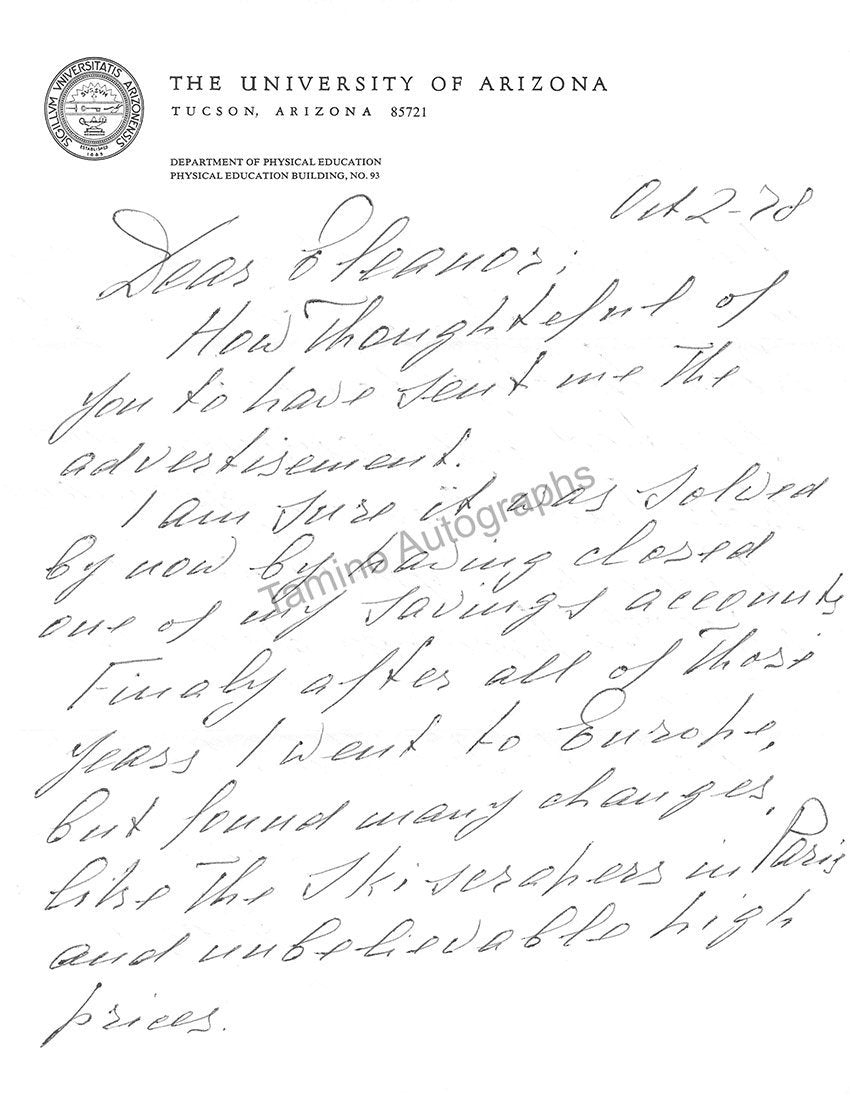 SIGILLVM VNIVERSITATIS ARIZONENSIS
ESTABLISHED
1885
THE UNIVERSITY OF ARIZONA
TUCSON, ARIZONA 85721
DEPARTMENT OF PHYSICAL EDUCATION
PHYSICAL EDUCATION BUILDING, NO. 93
Oct 2-78
Dear Eleanor;
How Thoughteful of
you to have sent me The
advertisement.
I am sure it was solved
by now by having closed
one of my savings accounts
Finaly after all of Those
years I went to Europe,
but found many changes,
like The Skiscrapers in Paris
and unbelievable high
prices.
Tamino Autographs